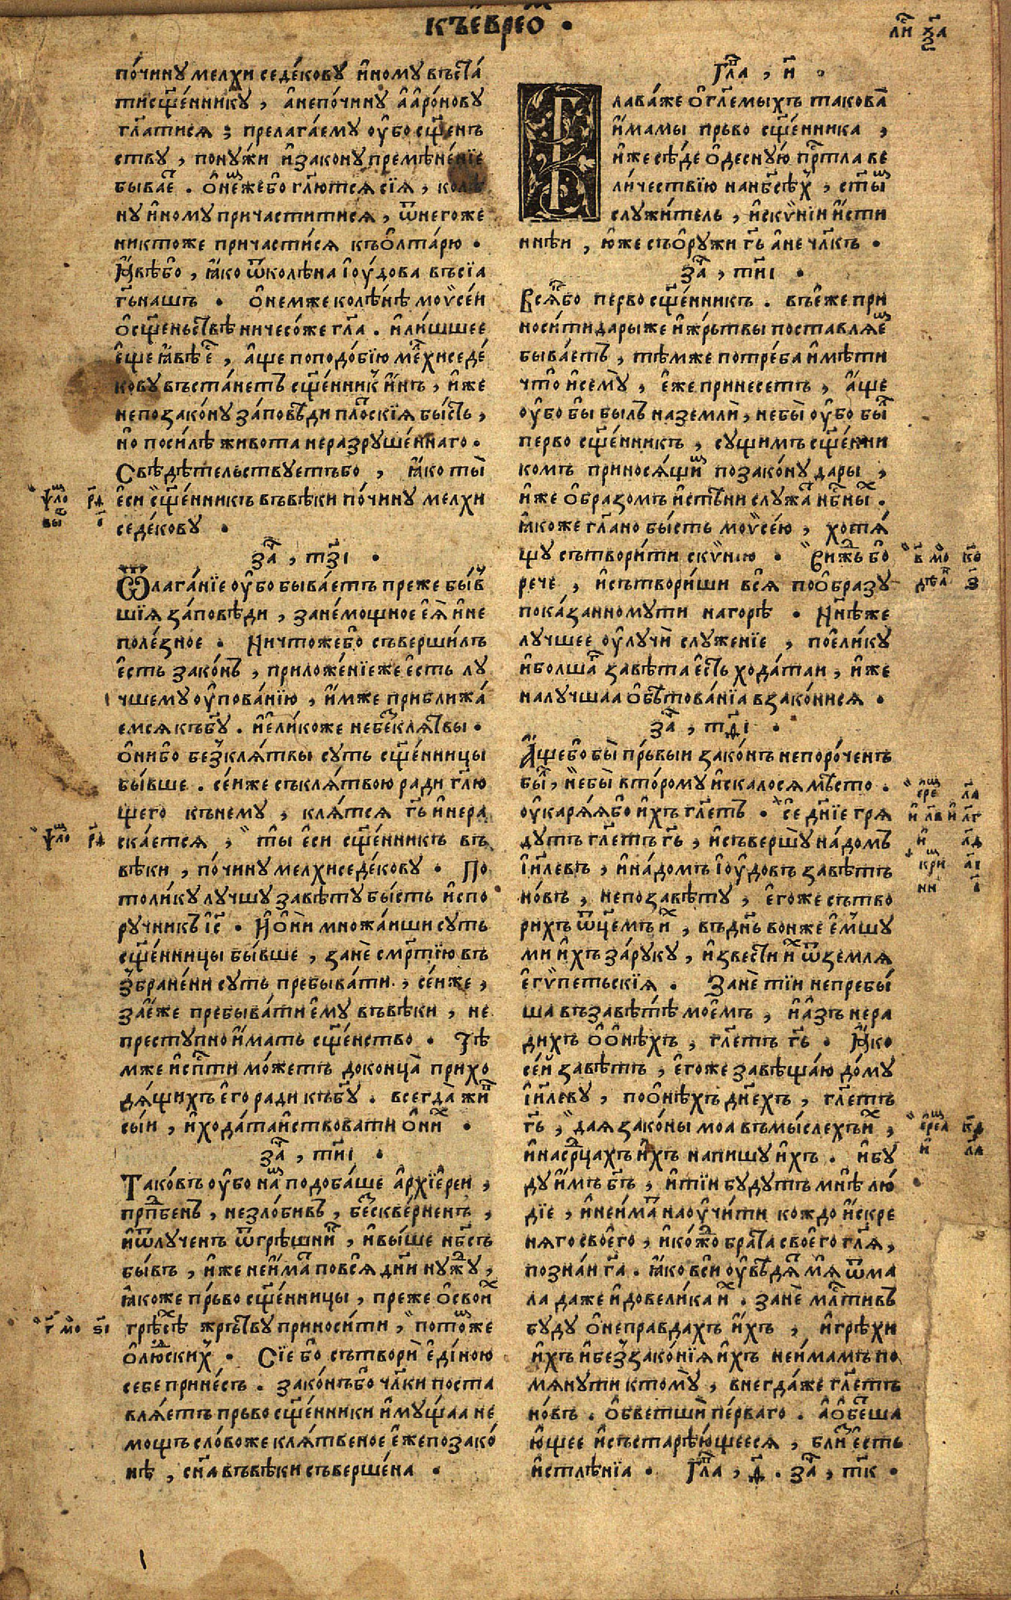 къ еврео҃м .
почину мелхиседекову иному въста́
ти сщ҃еннику , а не по чину ааронову
гл҃атися ; прелагаему оубо сщ҃енъ
ству , по нужи и закону пременение
бывае҃ . о нем же бо гл҃ются сия , коле
ну иному причастися , ѿ него же
никтоже приступи къ олтарю .
Яве бо , яко ѿ колена иоудова въсиа
гь҃ нашъ . о нем же колене моѵсеи
о сщ҃еньстве ничесоже гл҃а . и лишшее
еще яве е҃ , аще по подобию мелхиседе
кову въстанетъ сщ҃енникъ инъ , иже
не по закону заповеди плотския бысть ,
но по силе живота неразрушеннаго .
Сведетельствуетъ бо , яко ты
еси сщ҃енникъ въ веки по чину мелхи
седекову .
за҃ , тз҃і .
Ѿлагание оубо бываетъ преже быв
шия заповеди , за немощное ея и не
полезное . Ничтоже бо съвершилъ
есть законъ , приложение же есть лу
чшему оупованию , им же приближа
емся къ бг҃у . и елико же не бес клятвы .
они бо без клятвы суть сщ҃енницы
бывше . сеи же съ клятвою ради гл҃ю
щего къ нему , клятся гь҃ и не рас
скается , ты еси сщ҃енникъ въ
веки , по чину мелхиседекову . По
толику лучшу завету бысть испо
ручникъ іс҃ . И они множаиши суть
сщ҃енницы бывше , зане смр҃тию въ
збранени суть пребывати , сеи же ,
зане же пребывати ему въ веки , не
преступно имать сщ҃енство . Те
мже и спасти можетъ до конца прихо
дящихъ его ради къ бг҃у . всегда живъ
сыи , и ходатаиствовати о них .
за҃ , ти҃і .
Таковъ оубо намъ подобаше архиереи ,
прп҃бенъ , незлобивъ , бесквернен ,
и ѿлученъ ѿ грешник , и выше нб҃съ
бывъ , иже не имать по вся дни нужу ,
якоже прьво сщ҃енницы , преже о своих
гресе жрътву приносити , потом же
о людских . Сие бо сътвори единою
себе принесъ . законъ бо чл҃ки поста
вляетъ прьво сщ҃енники имущаа не
мощъ слово же клятвеное еже по зако
не , сн҃а въ веки съвершена .
Гла , и҃ .
Глава же о гл҃емыхъ такова
имамы прьво сщ҃енника ,
иже седе одесную прст҃ла ве
личествию на нб҃сех , ст҃ым
служитель , и скѵнии исти
ннеи , юже съоружи гь҃ а не чл҃къ .
за҃ , ти҃і .
Всяк бо перво сщ҃енникъ . въ еже при
носити дары же и жрьтвы поставляем
бываетъ , тем же потреба имети
что и сему , еже принесетъ , аще
оубо бы былъ на земли , не бы оубо был
перво сщ҃енникъ , сущимъ сщ҃енни
комъ приносящим по закону дары ,
иже образомъ и стени служа нб҃ных .
якоже гл҃ано бысть моѵсею , хотя
щу сътворити скѵнию . Виж бо
рече , и сътвориши вся по образу
показанному ти на горе . Ныне же
лучшее оулучи служение , поелику
и болша завета есть ходатаи , иже
на лучшаа обетованиа взаконися .
за҃ , тд҃і .
Аще бо бы прьвыи законъ непороченъ
был , не бы второму искалося место .
оукаряя бо ихъ гл҃етъ . се дние гря
дутъ гл҃етъ гь҃ , и съвершу на домъ
іил҃евъ , и на домъ іоудовъ заветъ
новъ , не по завету , егоже сътво
рихъ ѿцемъ их , въ днь҃ вон же емшу
ми ихъ за руку , извести их ѿ земля
егѵпетьския . Зане тии не пребы
ша въ завете моемъ , и азъ нера
дихъ о онехъ , гл҃етъ гь҃ . Яко
сеи заветъ , егоже завещаю дому
іил҃еву , по онехъ днехъ , гл҃етъ
гь҃ , дая законы моа въ мыслехъ их ,
и на сердцахъ ихъ напишу ихъ . и бу
ду имъ бг҃ъ , и тии будутъ мне лю
дие , и не имать наоучити кождо искре
няго своего , и кождо брата своего гл҃я ,
познаи га҃ . яко вси оуведят мя ѿ ма
ла даже и до велика их . зане милостивъ
буду о неправдахъ ихъ , и грехи
ихъ и беззакония ихъ не имамъ по
мянути к тому , внегда же гл҃етъ
новъ . обветши перваго . а обеша
ющее и състареющееся , близ есть
истления . Гла , д҃ . за҃ , тк҃ .